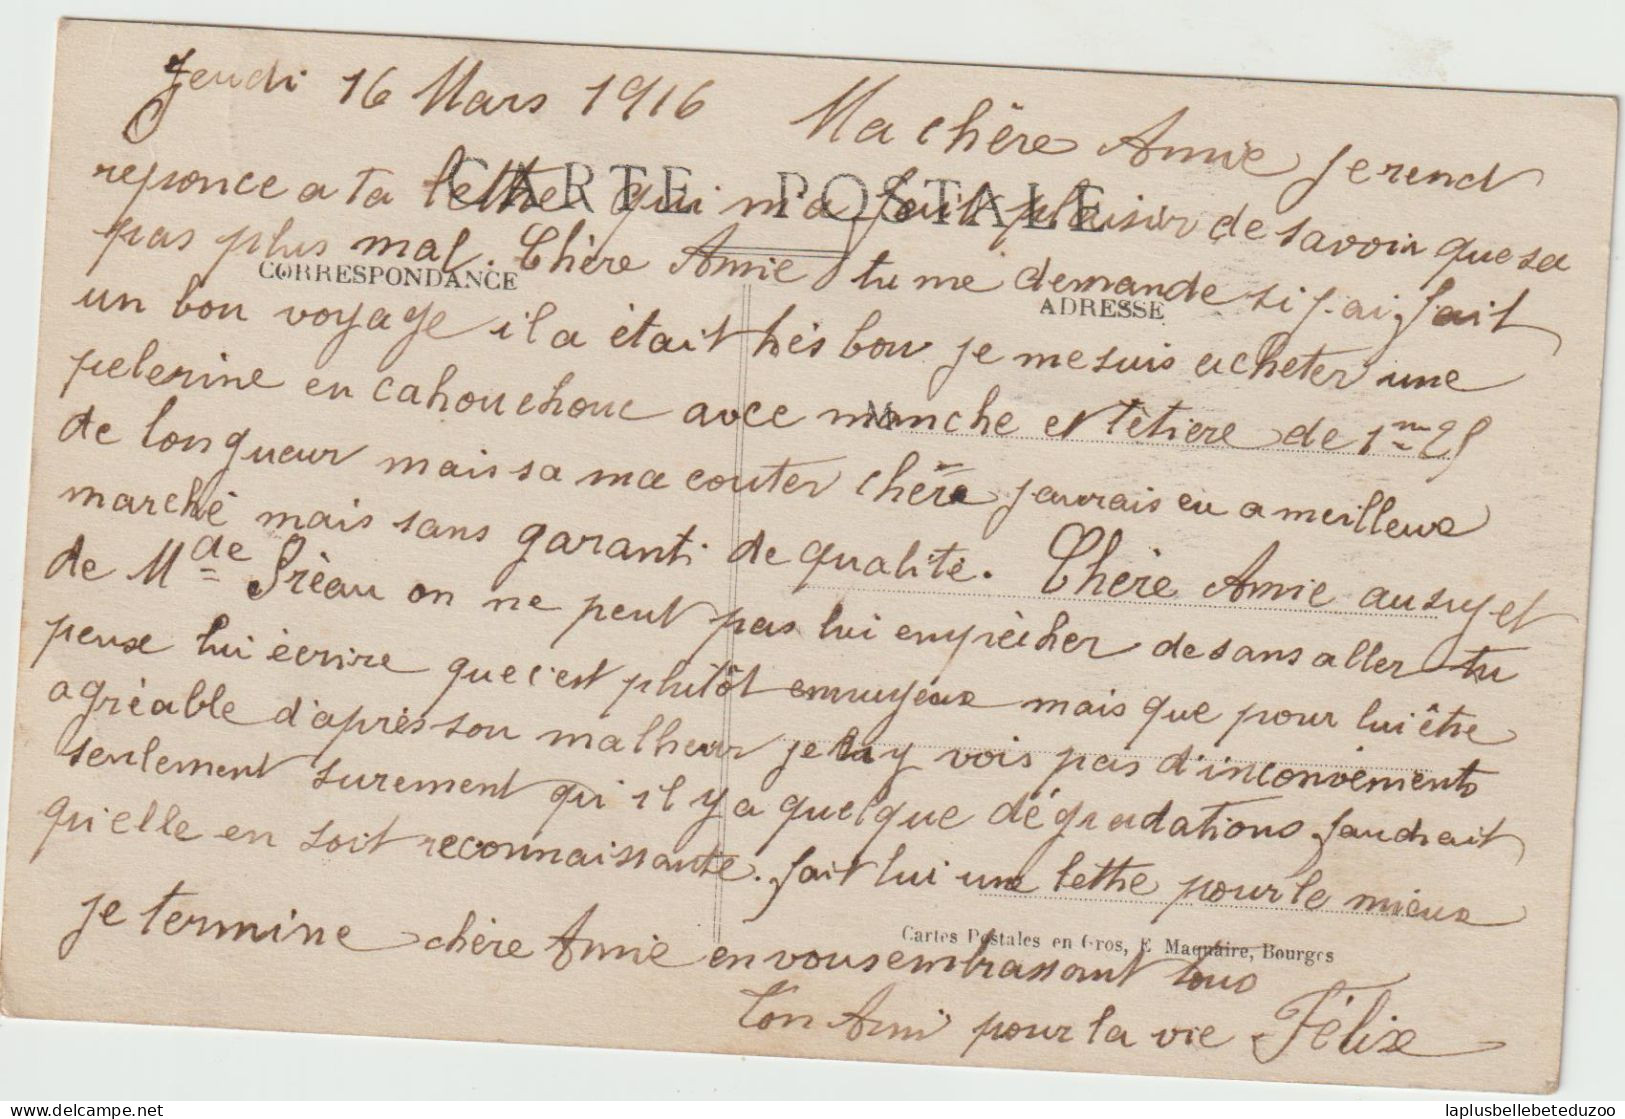 Jeudi 16 Mars 1916 Ma chère Amie je rend
reponce a ta lettre qui m'a fait plaisir de savoir que sa
CARTE POSTALE
pas plus mal. Chère Amie tu me demande si j.ai fait
CORRESPONDANCE
ADRESSE
un bon voyage il a était très bon je me suis acheter une
pelerine en cahouchouc avec manche et tètiere de 1m25
de longueur mais sa ma couter chère jaurais eu a meilleur
marché mais sans garanti de qualité. Chère Amie au sujet
de Mde Prèau on ne peut pas lui empècher de sans aller tu
peux lui ècrire que c'est plutôt ennuyeux mais que pour lui être
agrèable d'après son malheur je ny vois pas d'inconvenients
seulement surement qui il y a quelque dégradations faudrait
qu'elle en soit reconnaissante. fait lui une lettre pour le mieux
je termine chère Amie en vous embrassant tous
Cartes Postales en Gros, E. Maquaire, Bourges
Ton Ami pour la vie Félix
laplusbellebeteduzoo